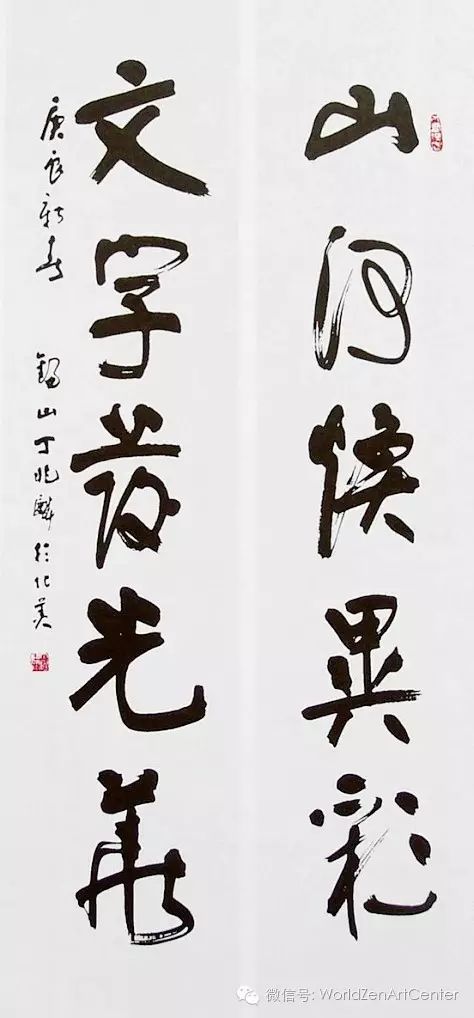 山河焕异彩
文字发光华
庚辰新春 锡山丁兆麟於化美
微信号: WorldZenArtCenter